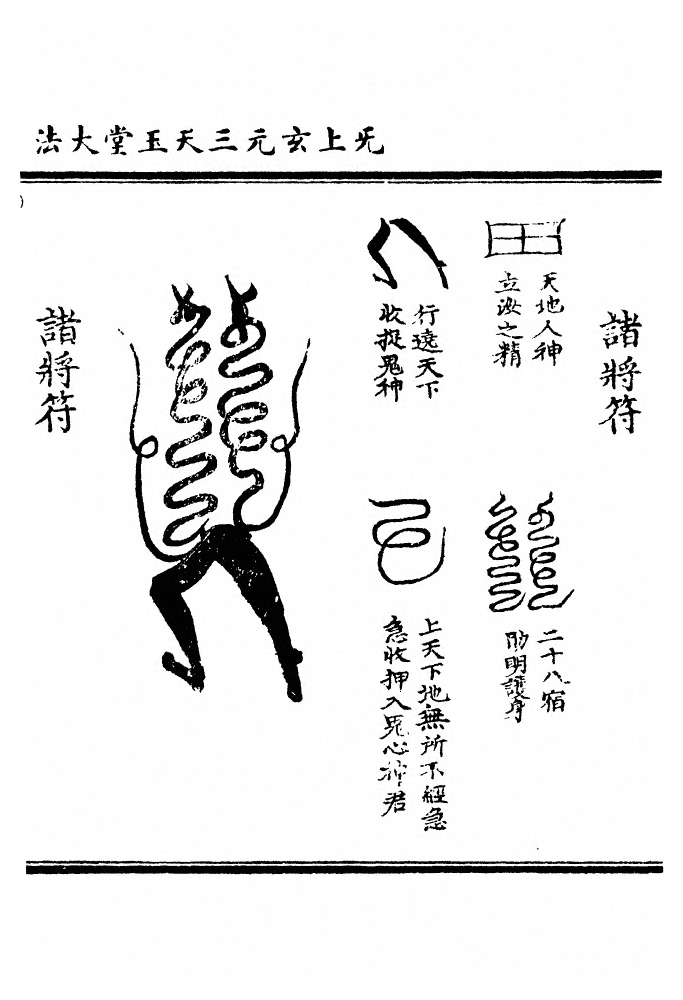 无上玄元三天玉堂大法
諸將符
天地人神
立汝之精
二十八宿
助明護身
行遶天下
收捉鬼神
上天下地無所不經急
急收押入鬼心神君
諸將符